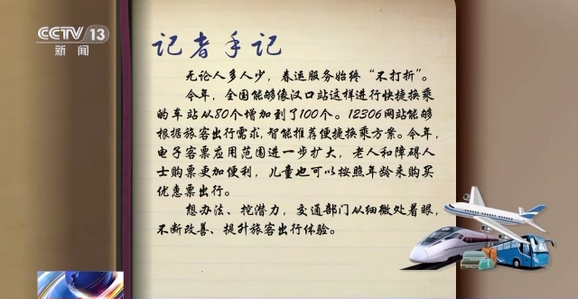 CCTV 13
新闻
记者手记
无论人多人少，春运服务始终“不打折”。
今年，全国能够像汉口站这样进行快捷换乘
的车站从80个增加到了100个。12306网站能够
根据旅客出行需求，智能推荐便捷换乘方案。今年，
电子客票应用范围进一步扩大，老人和障碍人
士购票更加便利，儿童也可以按照年龄来购买
优惠票出行。
想办法、挖潜力，交通部门从细微处着眼，
不断改善、提升旅客出行体验。